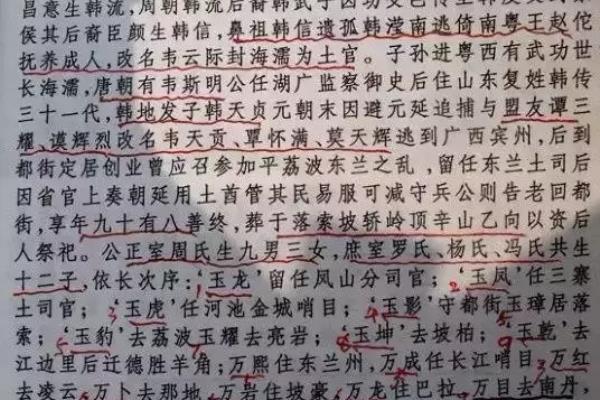 昌意生韩流，周朝韩流后裔韩武子因功
侯其后裔臣颜生韩信，鼻祖韩信遗孤韩滢南逃倚南粤王赵佗
抚养成人，改名韦云际封海濡为土官。子孙进粤西有武功世
长海濡，唐朝有韦斯明公任湖广监察御史后住山东复姓韩传
三十一代，韩地发子韩天贞元朝末因避元延追捕与盟友谭三
耀、谟辉烈改名韦天贡、覃怀满、莫天辉逃到广西宾州，后到
都街定居创业曾应召参加平荔波东兰之乱，留任东兰土司后
因省官上奏朝延用土首管其民易服可减守兵公则告老回都
街，享年九十有八善终，葬于落索坡轿岭顶辛山乙向以资后
人祭祀。公正室周氏生九男三女，庶室罗氏、杨氏、冯氏共生
十二子，依长次序：1‘玉龙’留任凤山分司官；2‘玉凤’任三寨
土司官；3‘玉虎’任河池金城哨目；4‘玉影’守都街玉璋居落
索；‘玉豹’去荔波玉耀去亮岩；8‘玉坤’去坡柏；9‘玉乾’去
江边里后迁德胜羊角；万熙住东兰州，万成任长江哨目，3万红
去凌云，万卜去那地，万岩住坡豪，万龙住巴拉，万目去南丹，